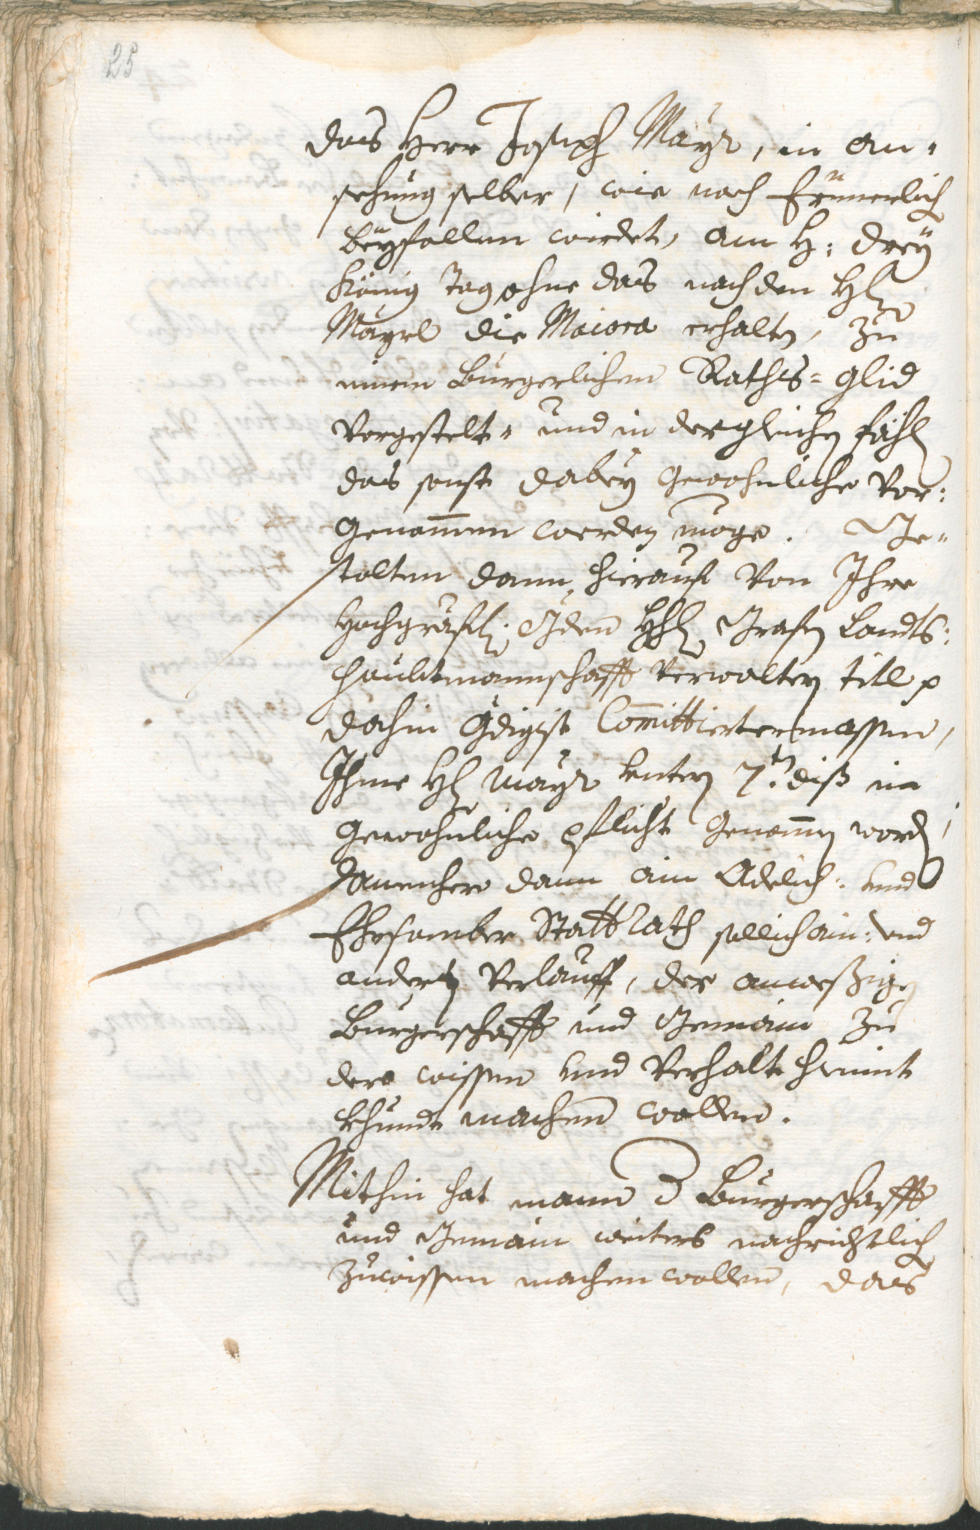 25
das Herr Joseph Mayr, in an-
sehung selber, wie noch Erinnerlich
beyfallen wirdet, am H: drey
König Tag ohne das nach den Hl
Mayrl die Maiora erhalten, zu
einem Burgerlichen Raths-glid
vorgestelt- und in dergleichen fähl
das sonst dabey gewohnliche vor:
genommen werden möge. Ge-
stalten dann hierauf von Ihro
Hochgräfl: Gden Hhl Grafen Landts:
haubtmannschafft Verwaltern titl p
dahin Gdigist Committiertermassen,
Ihme Hl Mayr untern 7.tn diß in
gewohnliche Pflicht genommen word,
dannenhero dann ain Adelich- und
Ehrsamber Stattrath sollich ain- und
anderen Verlauff, der anweßigen
Burgerschafft und Gemain zu
dero wissen und verhalt hiemit
khundt machen wollen.
Mithin hat mann d Burgerschafft
und Gemain weiters nachrichtlich
zuwissen machen wollen, das